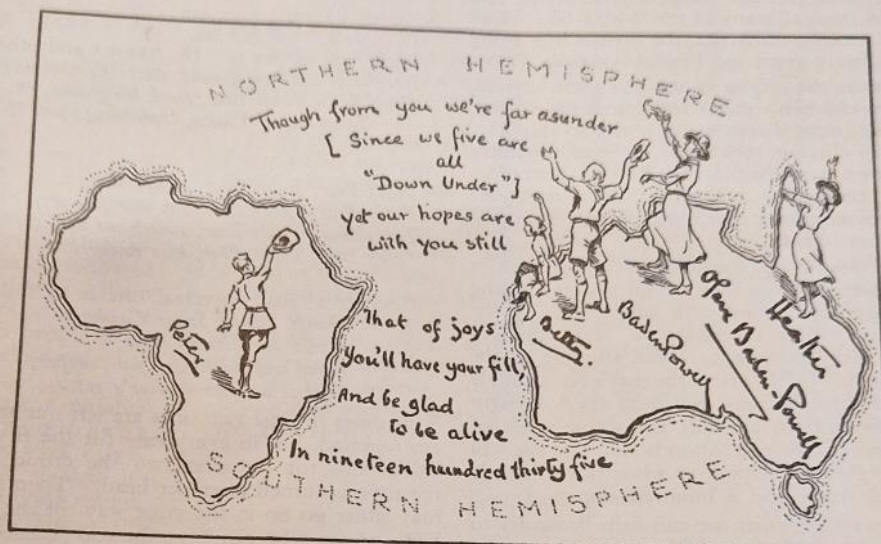 NORTHERN HEMISPHERE
Though from you we're far asunder
[ Since we five are
all
"Down Under"]
yet our hopes are
with you still
That of joys
You'll have your fill,
And be glad
To be alive
In nineteen hundred thirty five
SOUTHERN HEMISPHERE
Peter
Betty.
Baden Powell
Olave Baden-Powell
Heather